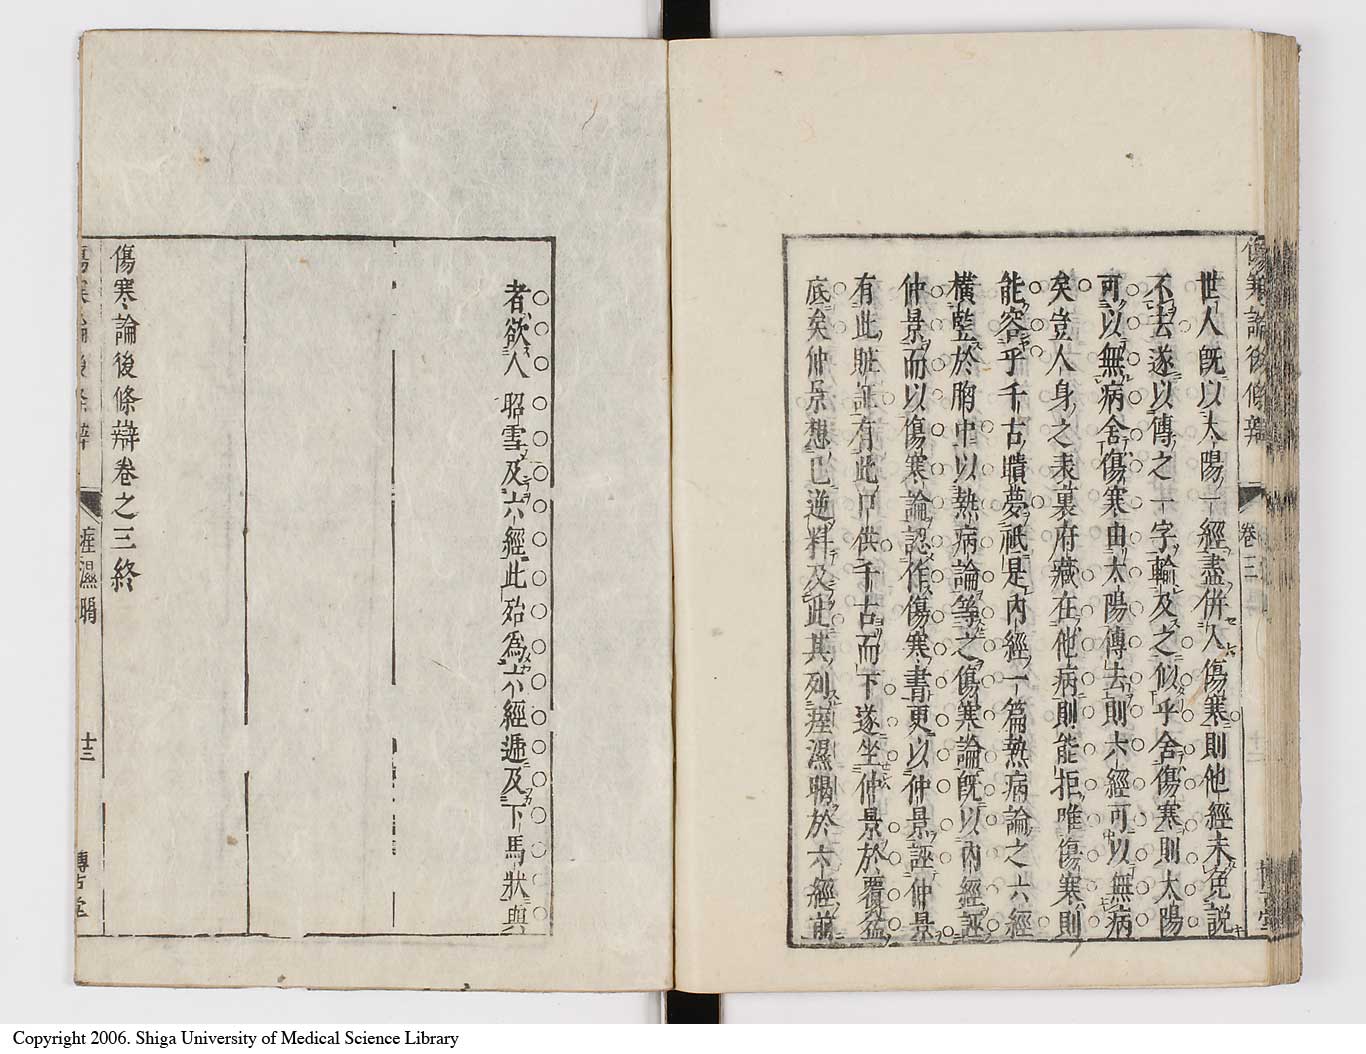 世人既以太陽一經盡併入傷寒則他經未免説
不去遂以傳之一字輸及之似乎舍傷寒則太陽
可以無病舍傷寒由太陽傳去則六經可以無病
矣豈人身之表裏府藏在他病則能拒唯傷寒則
能容乎千古聵夢祇是内經一篇熱病論之六經
橫監於胸中以熱病論等之傷寒論既以内經誣
仲景而以傷寒論認作傷寒書更以仲景誣仲景
有此賍証有此口供千古而下遂坐仲景於覆盆
底矣仲景想已逆料及此其列痙濕暍於六經前
傷寒論後條辯
卷三
者欲人昭雪及六經此殆為六經遞及下馬狀與
傷寒論後條辯卷之三終
痙濕暍
十三
Copyright 2006. Shiga University of Medical Science Library